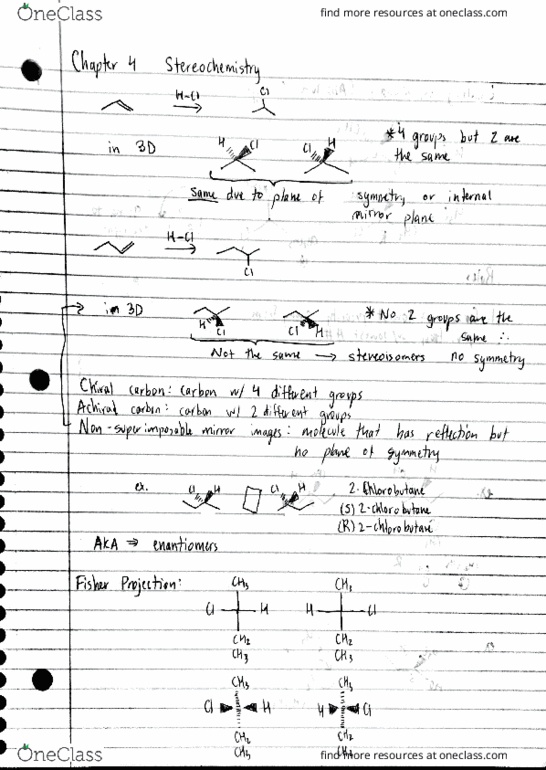 OneClass
find more resources at oneclass.com
Chapter 4 Stereochemistry
H-Cl
Cl
in 3D
H Cl
Cl H
* 4 groups but 2 are
the same
Same due to plane of symmetry or internal
mirror plane
H-Cl
Cl
in 3D
H Cl
Cl H
* No 2 groups are the
same ∴
Not the same → stereoisomers no symmetry
Chiral carbon: carbon w/ 4 different groups
Achiral carbon: carbon w/ 2 different groups
Non-superimposable mirror images: molecule that has reflection but
no plane of symmetry
ex.
Cl H
Cl H
2-Chlorobutane
(S) 2-chlorobutane
(R) 2-chlorobutane
AKA ⇒ enantiomers
Fisher Projection:
CH₃ CH₃
Cl H H Cl
CH₂ CH₂
CH₃ CH₃
CH₃ CH₃
Cl H H Cl
CH₂ CH₂
CH₃
OneClass
find more resources at oneclass.com